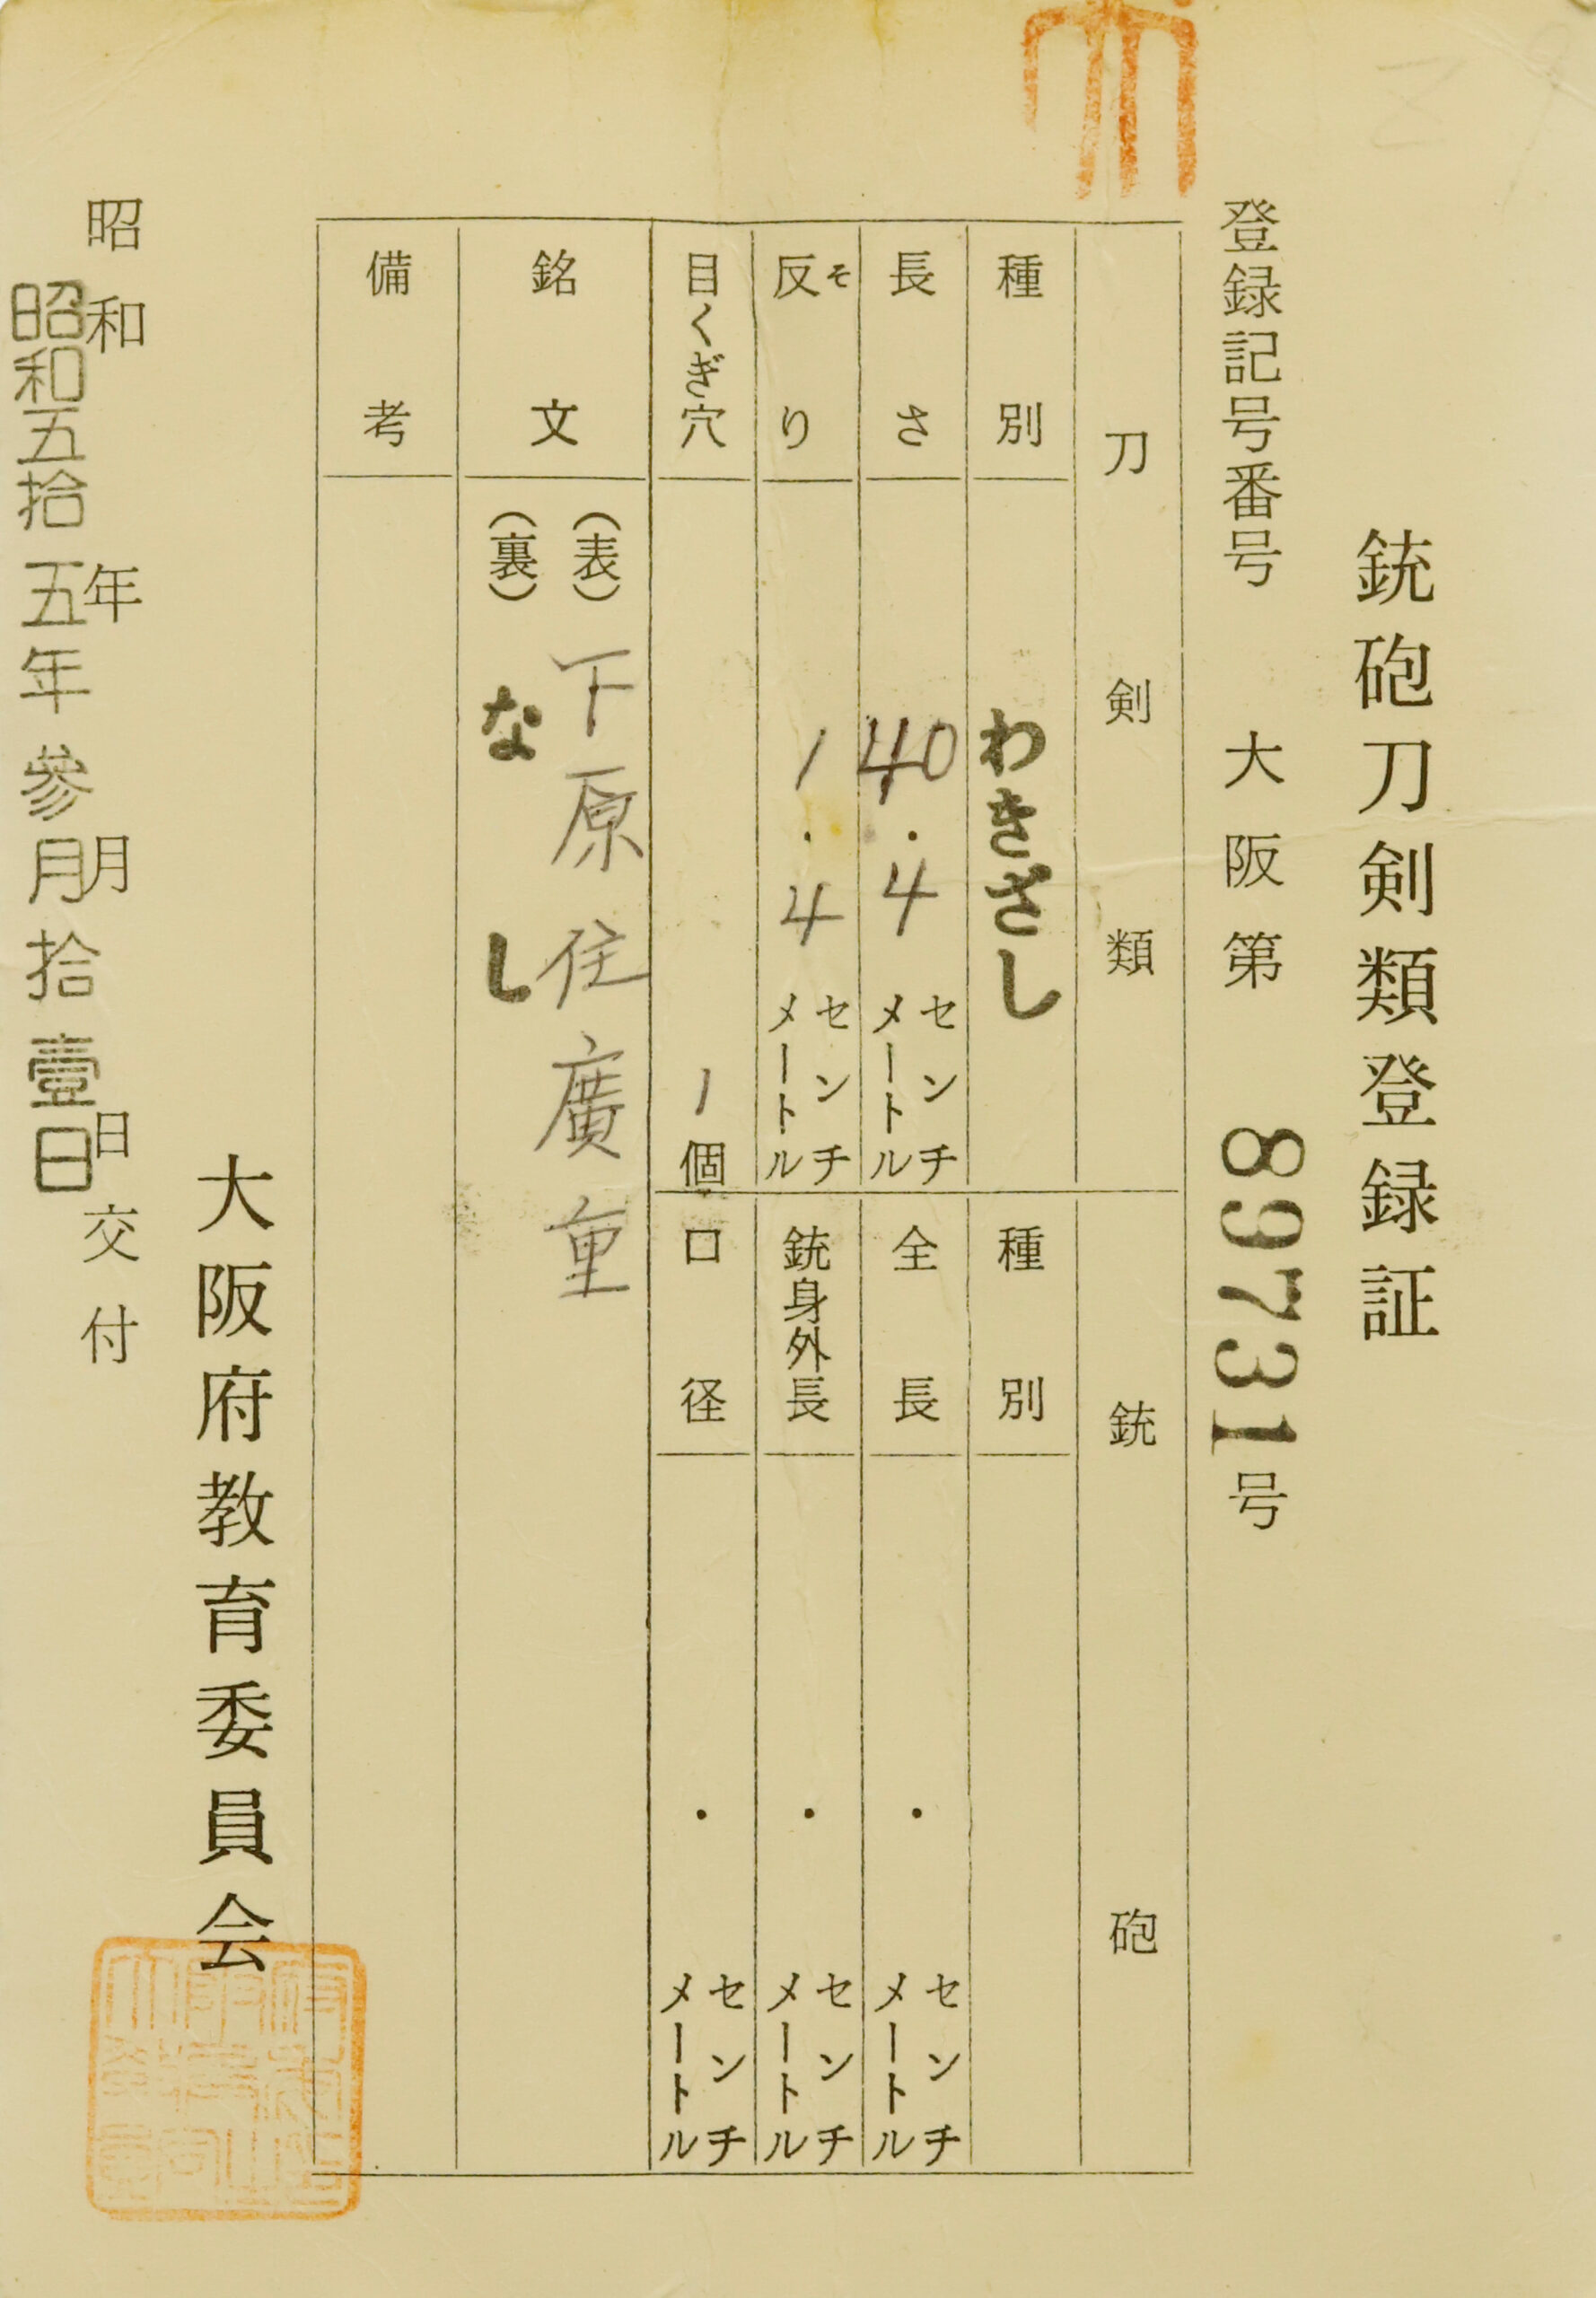 銃砲刀剣類登録証
登録記号番号 大阪第 89731 号
刀剣類
種別 わきざし
長さ 40.4 センチメートル
反り そ 1.4 センチメートル
目くぎ穴 1個
銃砲
種別
全長 ・ センチメートル
銃身外長 ・ センチメートル
口径 ・ センチメートル
銘文 (表) 下原住廣重
(裏) なし
備考
大阪府教育委員会
昭和 年 月 日 交付
昭和五拾五年參月拾壹日